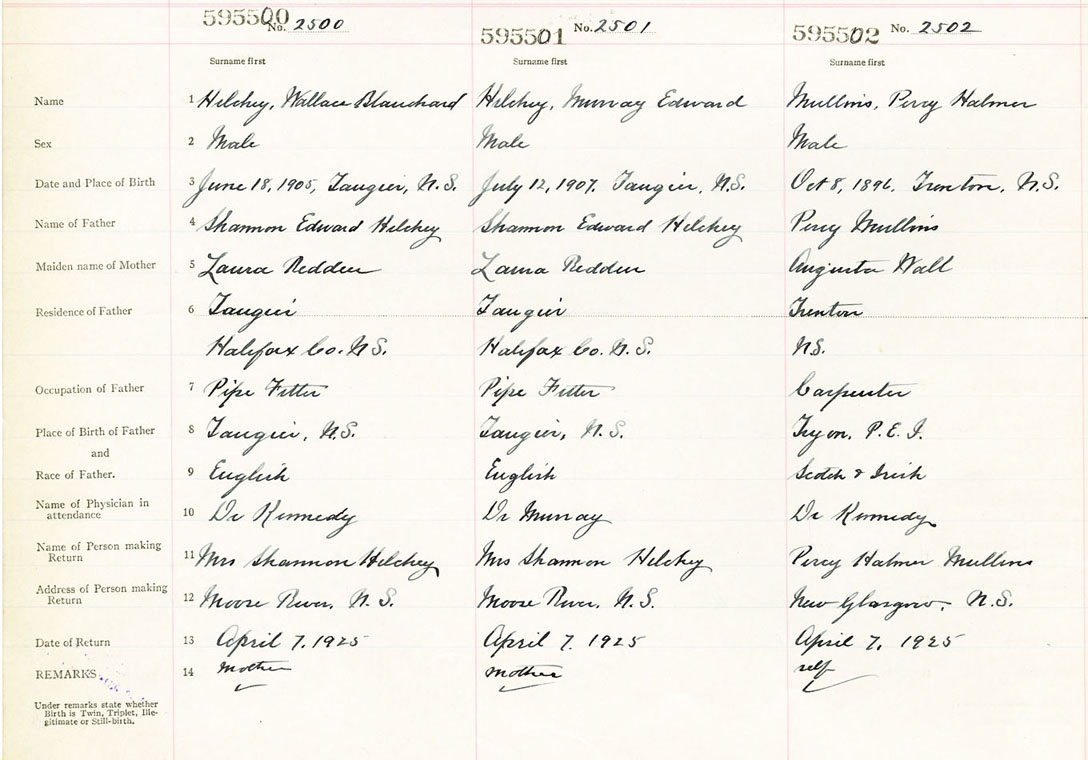 595500 No. 2500 595501 No. 2501 595502 No. 2502
Surname first Surname first Surname first
Name 1 Hilchey, Wallace Blanchard Hilchey, Murray Edward Mullins, Percy Halmer
Sex 2 Male Male Male
Date and Place of Birth 3 June 18, 1905, Tangier, N.S. July 12, 1907. Tangier, N.S. Oct 8, 1896, Trenton, N.S.
Name of Father 4 Shannon Edward Hilchey Shannon Edward Hilchey Percy Mullins
Maiden name of Mother 5 Laura Redden Laura Redden Augusta Wall
Residence of Father 6 Tangier Tangier Trenton
Halifax Co. N.S. Halifax Co. N.S. N.S.
Occupation of Father 7 Pipe Fitter Pipe Fitter Carpenter
Place of Birth of Father 8 Tangier, N.S. Tangier, N.S. Tryon, P.E.I.
and
Race of Father. 9 English English Scotch & Irish
Name of Physician in
attendance 10 Dr Kennedy Dr Murray Dr Kennedy
Name of Person making
Return 11 Mrs Shannon Hilchey Mrs Shannon Hilchey Percy Halmer Mullins
Address of Person making
Return 12 Moose River, N.S. Moose River, N.S. New Glasgow, N.S.
Date of Return 13 April 7, 1925 April 7, 1925 April 7, 1925
REMARKS 14 mother mother self
Under remarks state whether
Birth is Twin, Triplet, Ille-
gitimate or Still-birth.